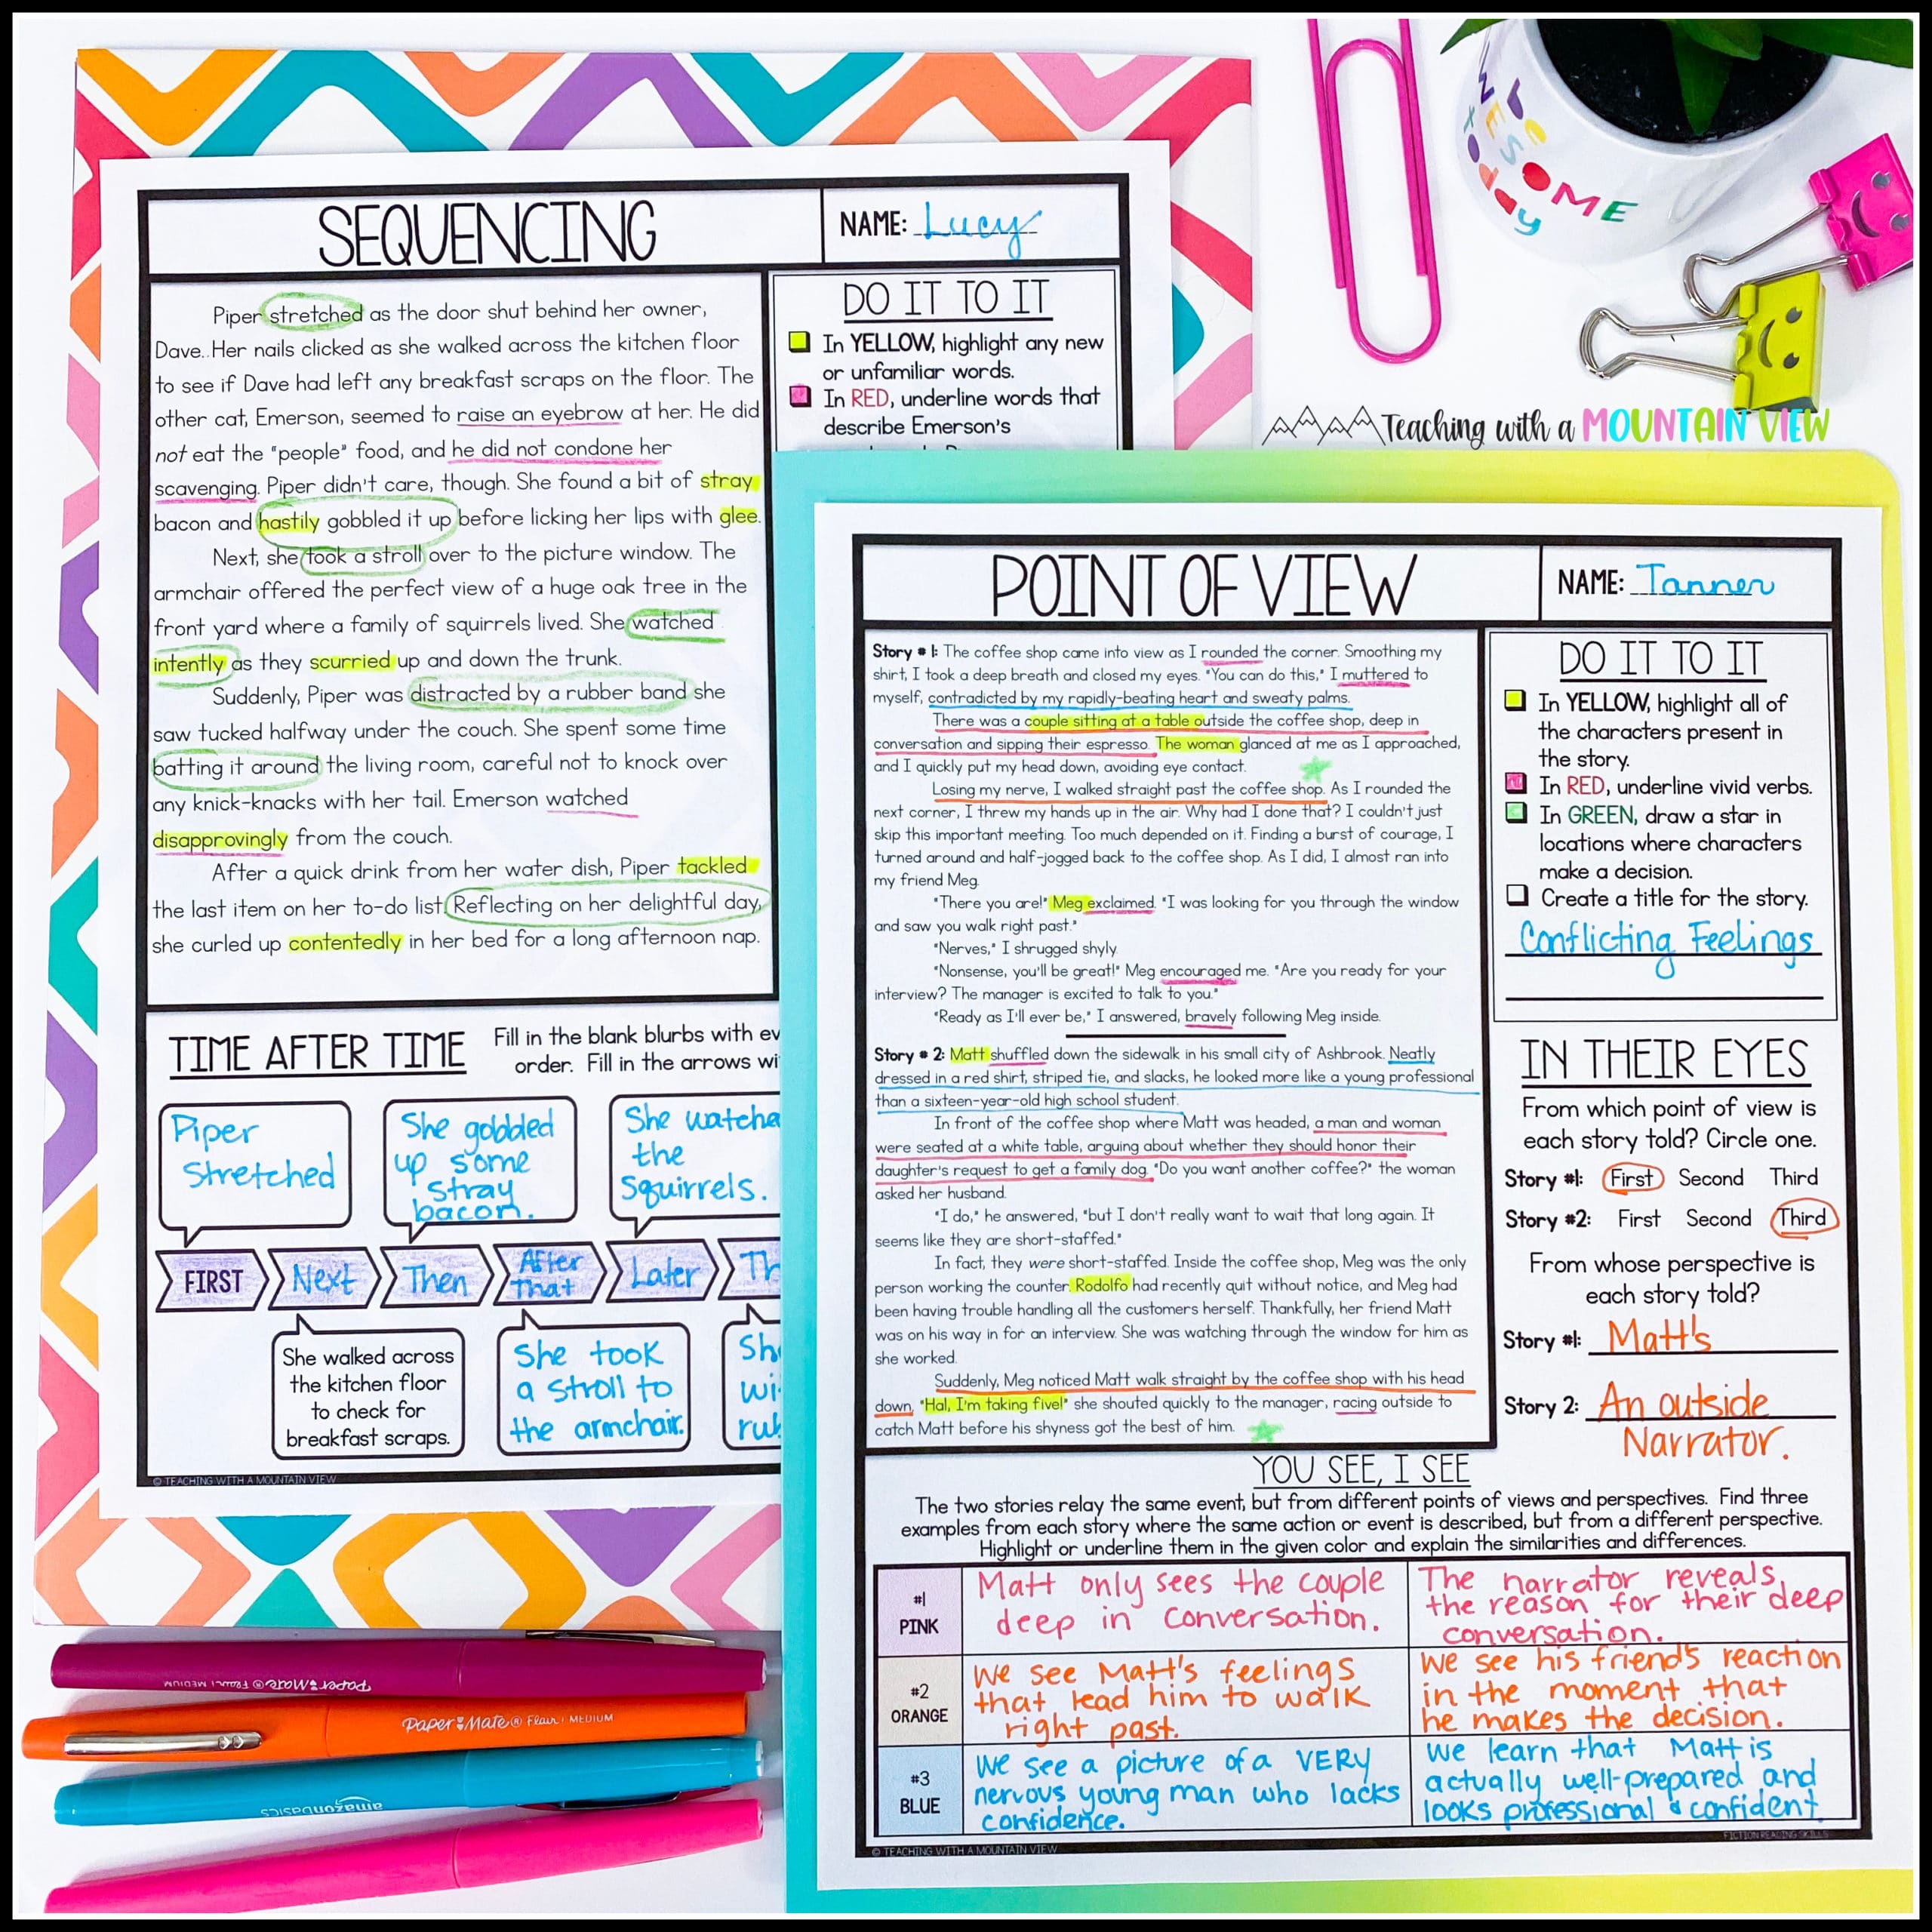 SEQUENCING
NAME: Lucy
Piper stretched as the door shut behind her owner,
Dave. Her nails clicked as she walked across the kitchen floor
to see if Dave had left any breakfast scraps on the floor. The
other cat, Emerson, seemed to raise an eyebrow at her. He did
not eat the "people" food, and he did not condone her
scavenging. Piper didn't care, though. She found a bit of stray
bacon and hastily gobbled it up before licking her lips with glee.
Next, she took a stroll over to the picture window. The
armchair offered the perfect view of a huge oak tree in the
front yard where a family of squirrels lived. She watched
intently as they scurried up and down the trunk.
Suddenly, Piper was distracted by a rubber band she
saw tucked halfway under the couch. She spent some time
batting it around the living room, careful not to knock over
any knick-knacks with her tail. Emerson watched
disapprovingly from the couch.
After a quick drink from her water dish, Piper tackled
the last item on her to-do list. Reflecting on her delightful day,
she curled up contentedly in her bed for a long afternoon nap.
DO IT TO IT
In YELLOW, highlight any new
or unfamiliar words.
In RED, underline words that
describe Emerson's
TIME AFTER TIME
Fill in the blank blurbs with ev
order. Fill in the arrows wi
Piper
Stretched
She gobbled
up some
stray
bacon.
She watche
the
squirrels.
FIRST
Next
Then
After
That
Later
Th
She walked across
the kitchen floor
to check for
breakfast scraps.
She took
a stroll to
the armchair.
Sh
wi
rub
© TEACHING WITH A MOUNTAIN VIEW
AWESOME
today
Teaching with a MOUNTAIN VIEW
POINT OF VIEW
NAME: Tanner
Story # 1: The coffee shop came into view as I rounded the corner. Smoothing my
shirt, I took a deep breath and closed my eyes. "You can do this," I muttered to
myself, contradicted by my rapidly-beating heart and sweaty palms.
There was a couple sitting at a table outside the coffee shop, deep in
conversation and sipping their espresso. The woman glanced at me as I approached,
and I quickly put my head down, avoiding eye contact.
Losing my nerve, I walked straight past the coffee shop. As I rounded the
next corner, I threw my hands up in the air. Why had I done that? I couldn't just
skip this important meeting. Too much depended on it. Finding a burst of courage, I
turned around and half-jogged back to the coffee shop. As I did, I almost ran into
my friend Meg.
"There you are!" Meg exclaimed. "I was looking for you through the window
and saw you walk right past."
"Nerves," I shrugged shyly.
"Nonsense, you'll be great!" Meg encouraged me. "Are you ready for your
interview? The manager is excited to talk to you."
"Ready as I'll ever be," I answered, bravely following Meg inside.
Story # 2: Matt shuffled down the sidewalk in his small city of Ashbrook. Neatly
dressed in a red shirt, striped tie, and slacks, he looked more like a young professional
than a sixteen-year-old high school student.
In front of the coffee shop where Matt was headed, a man and woman
were seated at a white table, arguing about whether they should honor their
daughter's request to get a family dog. "Do you want another coffee?" the woman
asked her husband.
"I do," he answered, "but I don't really want to wait that long again. It
seems like they are short-staffed."
In fact, they were short-staffed. Inside the coffee shop, Meg was the only
person working the counter. Rodolfo had recently quit without notice, and Meg had
been having trouble handling all the customers herself. Thankfully, her friend Matt
was on his way in for an interview. She was watching through the window for him as
she worked.
Suddenly, Meg noticed Matt walk straight by the coffee shop with his head
down. "Hal, I'm taking five!" she shouted quickly to the manager, racing outside to
catch Matt before his shyness got the best of him.
DO IT TO IT
In YELLOW, highlight all of
the characters present in
the story.
In RED, underline vivid verbs.
In GREEN, draw a star in
locations where characters
make a decision.
Create a title for the story.
Conflicting Feelings
IN THEIR EYES
From which point of view is
each story told? Circle one.
Story #1: First Second Third
Story #2: First Second Third
From whose perspective is
each story told?
Story #1: Matt's
Story 2: An outside
Narrator.
YOU SEE, I SEE
The two stories relay the same event, but from different points of views and perspectives. Find three
examples from each story where the same action or event is described, but from a different perspective.
Highlight or underline them in the given color and explain the similarities and differences.
#1
PINK
Matt only sees the couple
deep in conversation.
The narrator reveals
the reason for their deep
conversation.
#2
ORANGE
We see Matt's feelings
that lead him to walk
right past.
We see his friend's reaction
in the moment that
he makes the decision.
#3
BLUE
We see a picture of a VERY
nervous young man who lacks
confidence.
We learn that Matt is
actually well-prepared and
looks professional & confident.
© TEACHING WITH A MOUNTAIN VIEW
FICTION READING SKILLS
Paper Mate® Flair MEDIUM
Paper Mate® Flair MEDIUM
amazonbasics